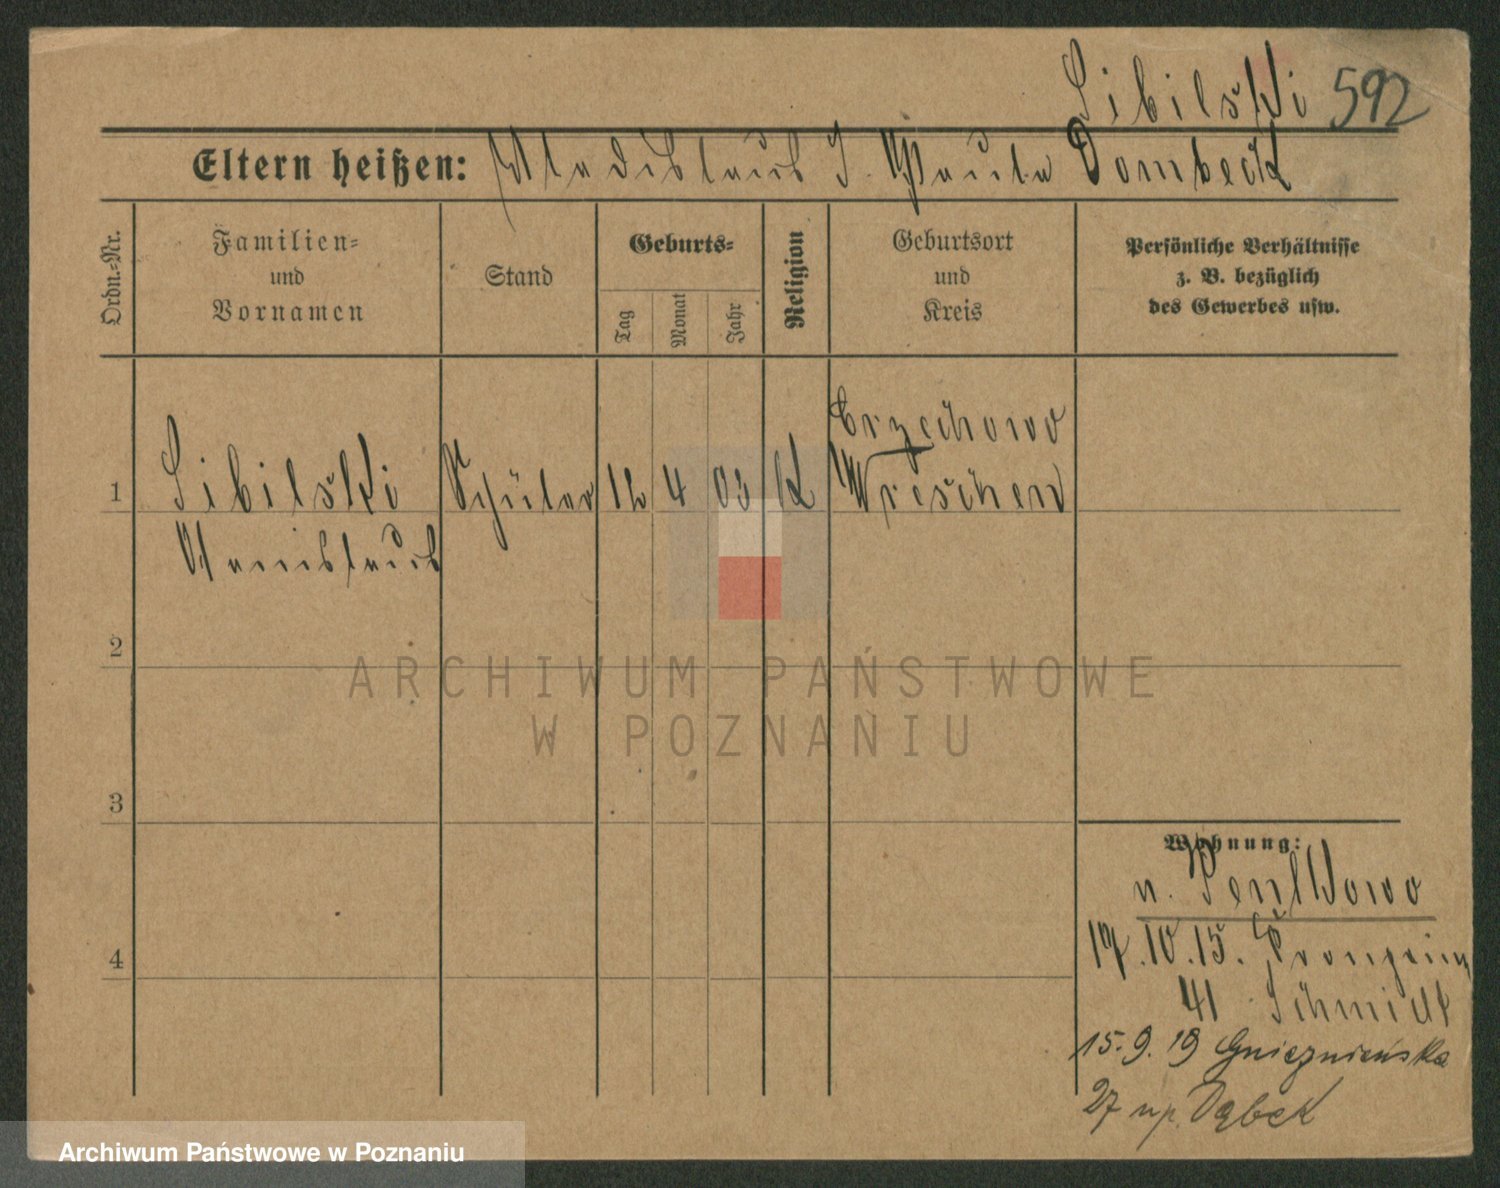 Sibilski 592
Eltern heißen: Wladislaus S. Paula Dombeck
Ordn.-Nr.
Familien-
und
Vornamen
Stand
Geburts-
Tag
Monat
Jahr
Religion
Geburtsort
und
Kreis
Persönliche Verhältnisse
z. B. bezüglich
des Gewerbes usw.
1
Sibilski Schüler 12 4 03 K
Wreschen
2
3
4
ARCHIWUM PAŃSTWOWE
W POZNANIU
Wohnung:
n.
17.10.15.
41 Schmidt
15.9.19 Gnieznieńska
27 up. Dąbek
Archiwum Państwowe w Poznaniu